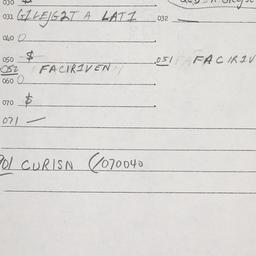 031 GILEJG2T A LATI 032
040 0
050 $ 051 FACIRIV
052 FACIRIVEN
060 0
070 $
071 —
901 CURISN (/070040